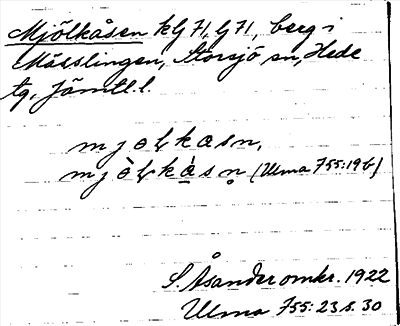 Mjölkåsen kG 71, G 71, berg i
Mässlingen, Storsjö sn, Hede
tg, Jämtl. l.
mjoɫkasn,
mjòɫkàsṇ (Ulma 755:19b)
S. Åsander omkr. 1922
Ulma 755:23 s. 30